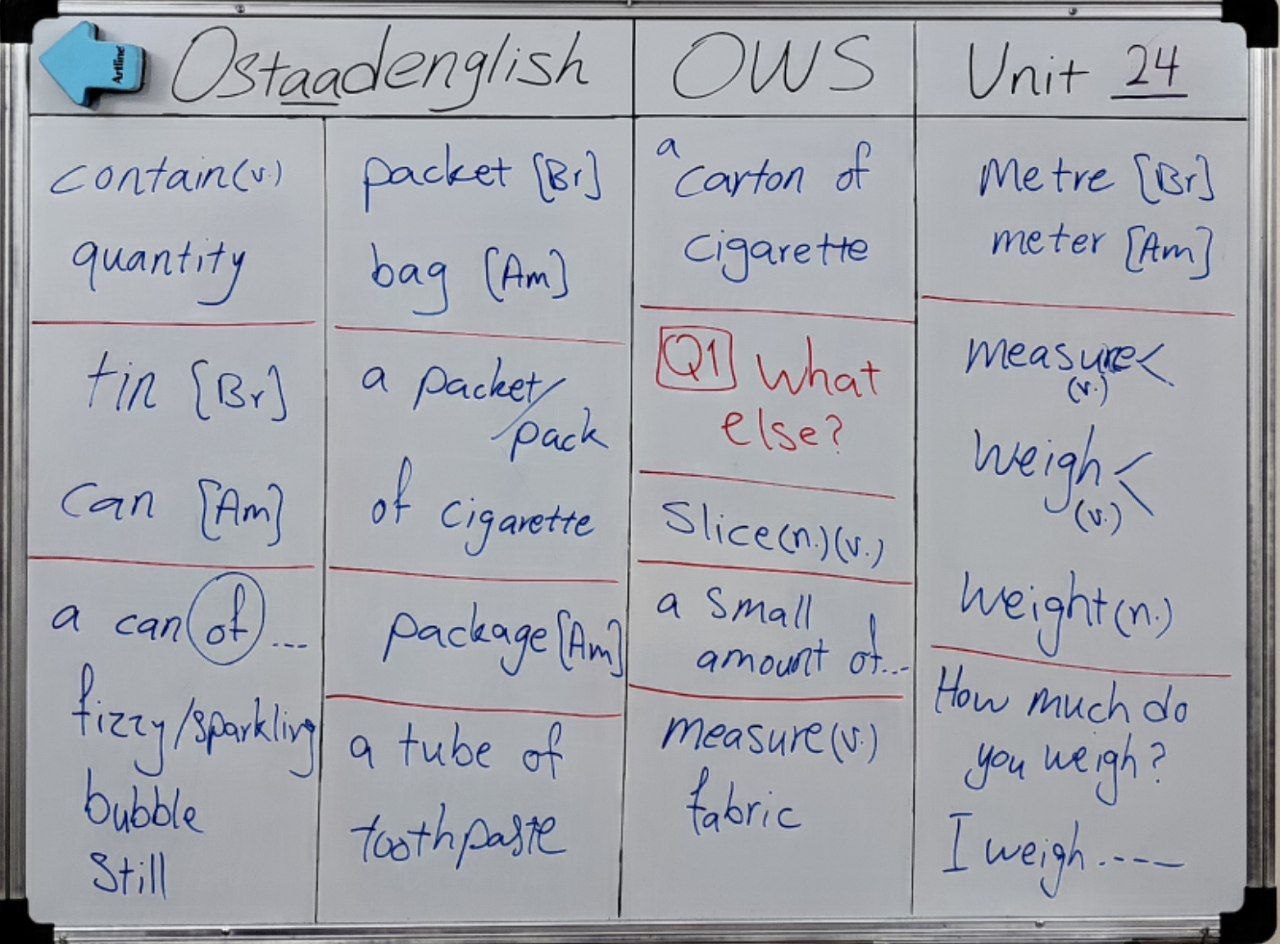 Artline
Ostaadenglish
OWS
Unit 24
contain(v.)
quantity
tin [Br]
can [Am]
a can of ...
fizzy/sparkling
bubble
Still
packet [Br]
bag [Am]
a packet/
pack
of cigarette
package [Am]
a tube of
toothpaste
a carton of
cigarette
Q1 What
else?
Slice(n.)(v.)
a small
amount of...
measure(v.)
fabric
Metre [Br]
meter [Am]
measure<
(v.)
Weigh<
(v.)
Weight(n.)
How much do
you weigh?
I weigh ----